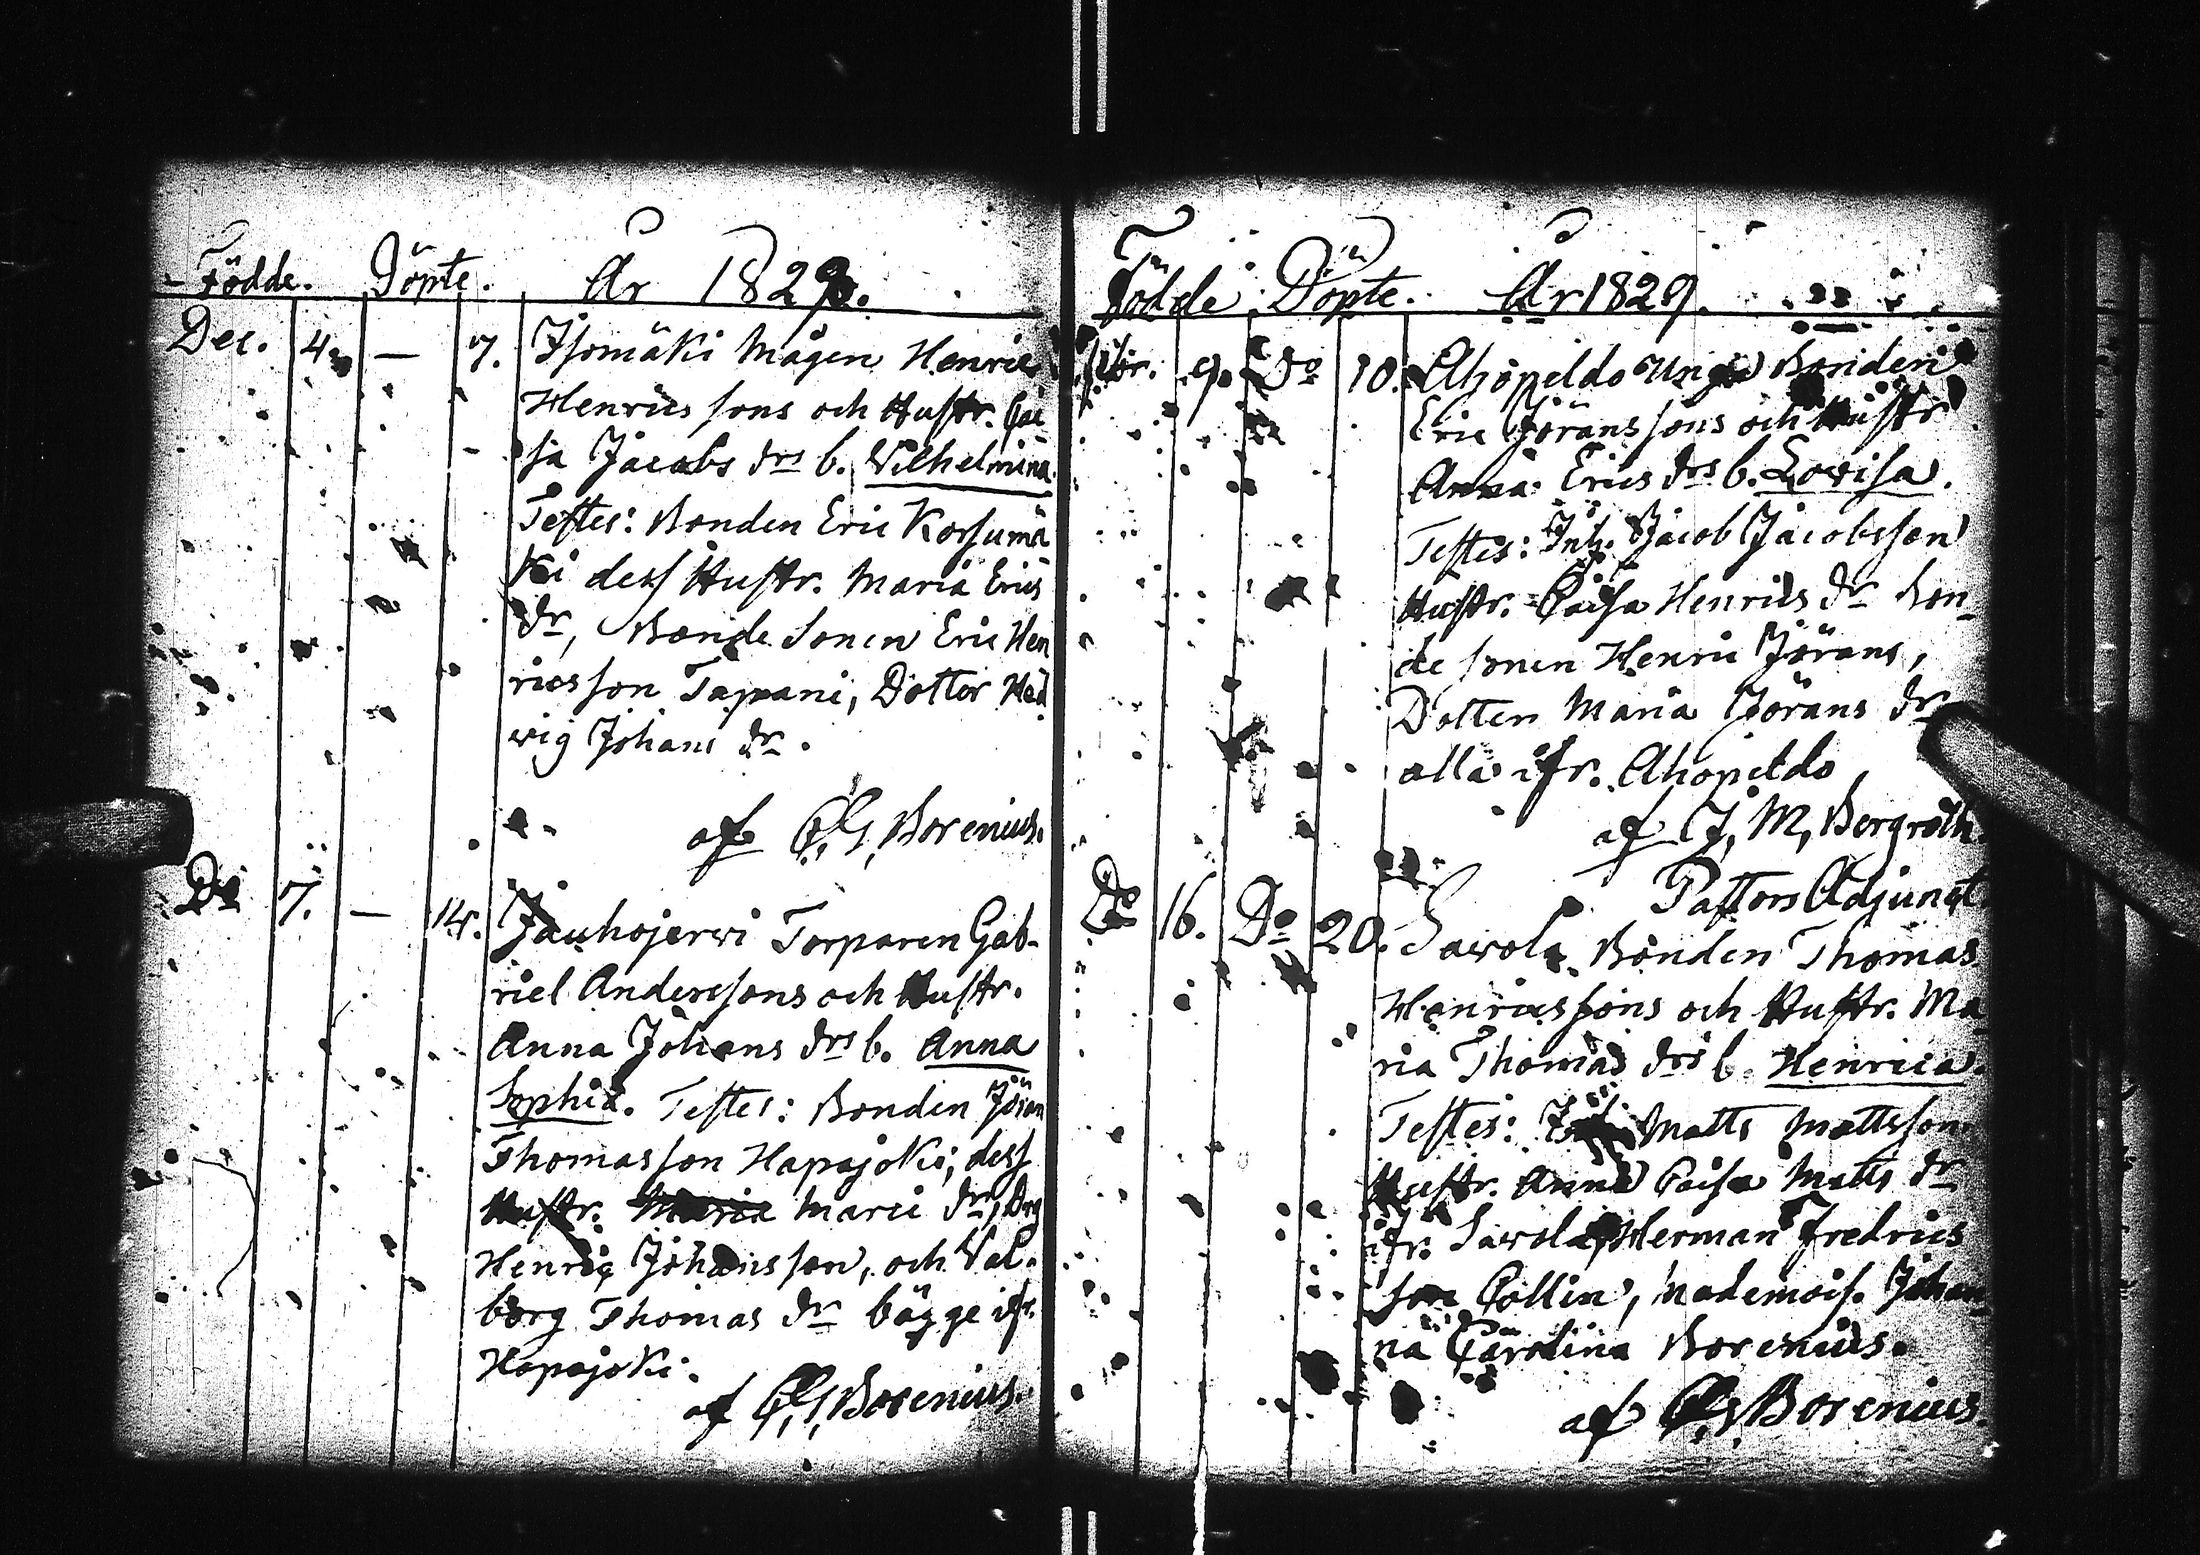 Födde. Döpte. År 1829.
Dec. 4. — 7. Isomäki Mågen Henric
Henrics sons och Hustr. Cai
sa Jacobs drs b. Vilhelmina
Testes: Bonden Eric Korsumä
ki dess Hustr. Maria Erics
dr, Bonde Sonen Eric Hen
ricsson Tapani, Dotter Hed
wig Johans dr.
af C. G. Borenius.
Do 7. — 14. Jauhojerwi Torparen Gab-
riel Anderssons och Hustr.
Anna Johans drs b. Anna
Sophia. Testes: Bonden Jöran
Thomasson Hapajoki; dess
Hustr. Maria Marci dr, Drg
Henric Johansson, och Val-
borg Thomas dr bägge ifr.
Hapajoki.
af C. G. Borenius.
Födde Döpte. År 1829.
9. Do 10. Ahopeldo Unga Bonden
Eric Jöransons och Hustr
Anna Erics drs b. Lovisa.
Testes: Inh. Jacob Jacobsson
Hustr. Caisa Henrics dr Bon-
de sonen Henric Jörans,
Dotten Maria Jörans dr
alla ifr. Ahopeldo
af J. M. Bergroth
Pastors Adjunct
Do 16. Do 20. Savola Bonden Thomas
Henricssons och Hustr. Ma
ria Thomas drs b. Henrica.
Testes: Matts Mattsson
Hustr. Anna Caisa Matts dr
ifr. Savola, Herman Fredrics
son Collin, Mademois. Johan-
na Carolina Borenius.
af C. G. Borenius.